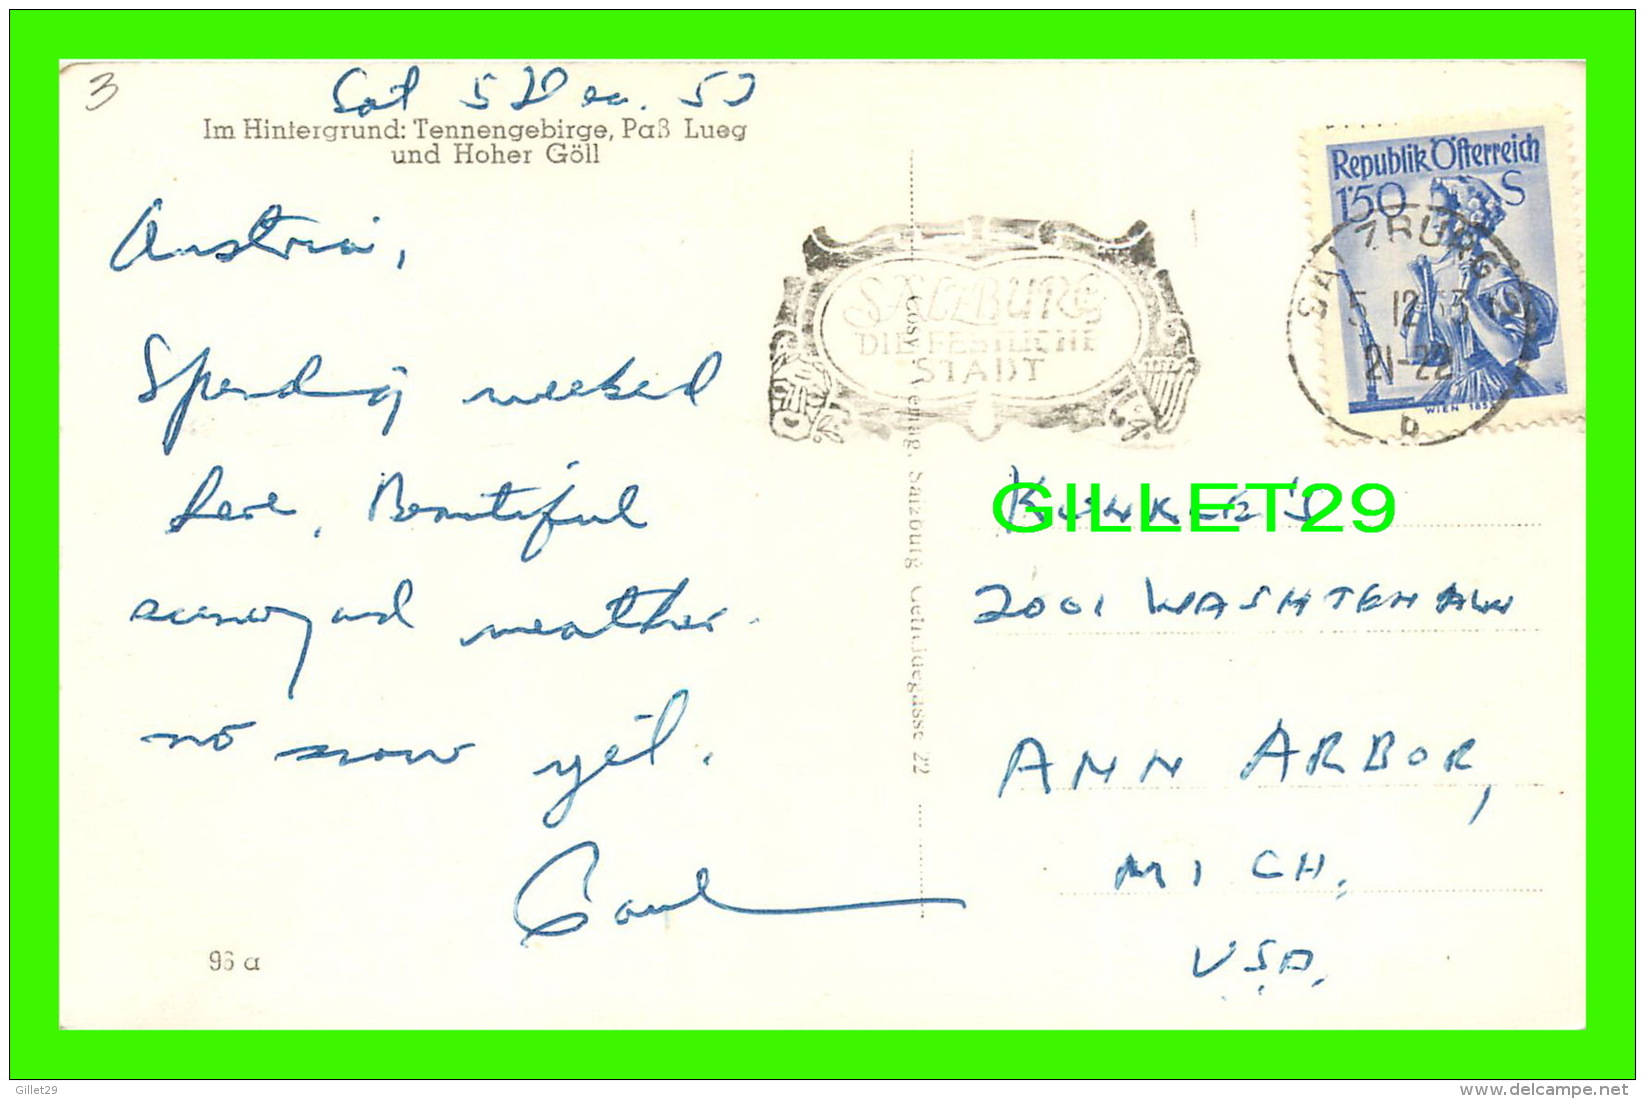 3
Sat 5 Dec. 53
Im Hintergrund: Tennengebirge, Paß Lueg
und Hoher Göll
Austria,
Spending weekend
here. Beautiful
scenery and weather.
no snow yet.
Paul
96 a
Cosy Verlag, Salzburg Getreidegasse 22
SALZBURG
DIE FESTLICHE
STADT
Republik Österreich
1'50 S
WIEN 18
SALZBURG 2
5 12 53
21-22
b
GILLET29
2001 WASHTENAW
ANN ARBOR,
MICH.
USA.
Gillet29
www.delcampe.net